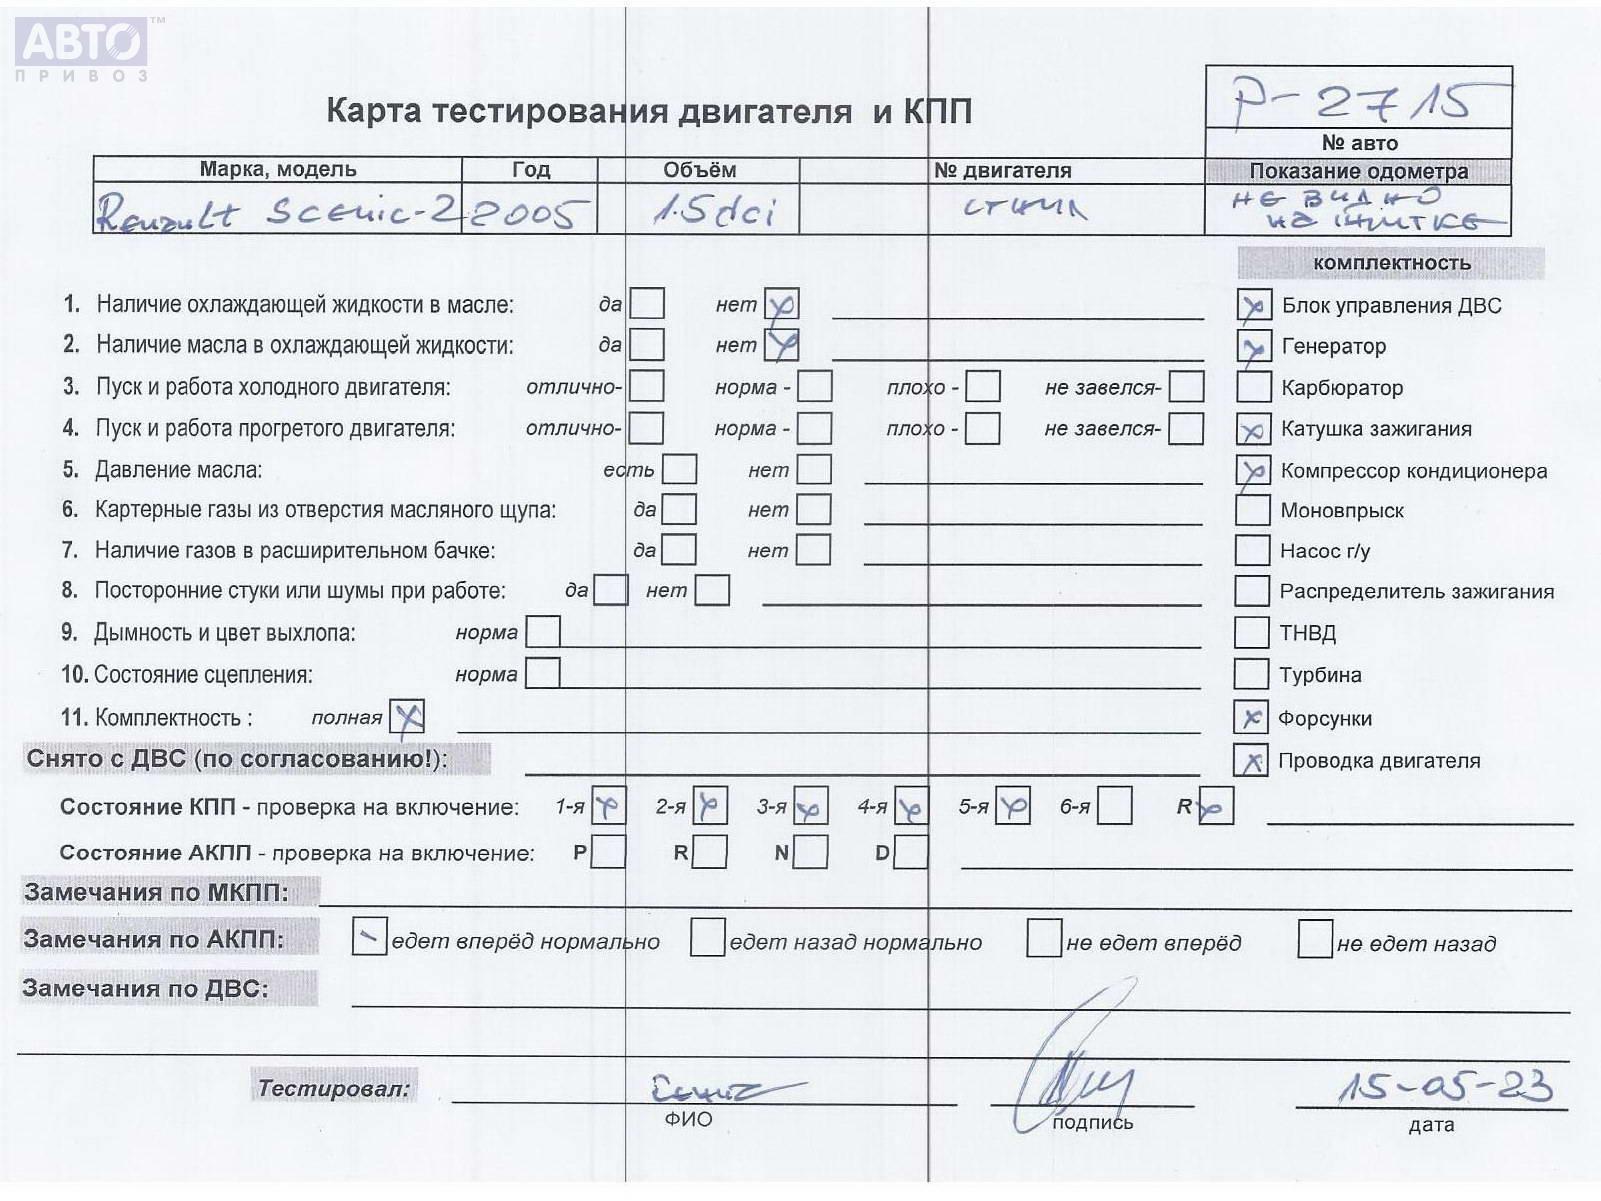 АВТО™
ПРИВОЗ
Р-2715
Карта тестирования двигателя и КПП
№ авто
Марка, модель Год Объём № двигателя Показание одометра
Renault Scenic-2 2005 1.5dci сгнил не видно
на щитке
комплектность
1. Наличие охлаждающей жидкости в масле: да нет Блок управления ДВС
2. Наличие масла в охлаждающей жидкости: да нет Генератор
3. Пуск и работа холодного двигателя: отлично- норма - плохо - не завелся- Карбюратор
4. Пуск и работа прогретого двигателя: отлично- норма - плохо - не завелся- Катушка зажигания
5. Давление масла: есть нет Компрессор кондиционера
6. Картерные газы из отверстия масляного щупа: да нет Моновпрыск
7. Наличие газов в расширительном бачке: да нет Насос г/у
8. Посторонние стуки или шумы при работе: да нет Распределитель зажигания
9. Дымность и цвет выхлопа: норма ТНВД
10. Состояние сцепления: норма Турбина
11. Комплектность : полная Форсунки
Снято с ДВС (по согласованию!): Проводка двигателя
Состояние КПП - проверка на включение: 1-я 2-я 3-я 4-я 5-я 6-я R
Состояние АКПП - проверка на включение: P R N D
Замечания по МКПП:
Замечания по АКПП: едет вперёд нормально едет назад нормально не едет вперёд не едет назад
Замечания по ДВС:
Тестировал: 15-05-23
ФИО подпись дата